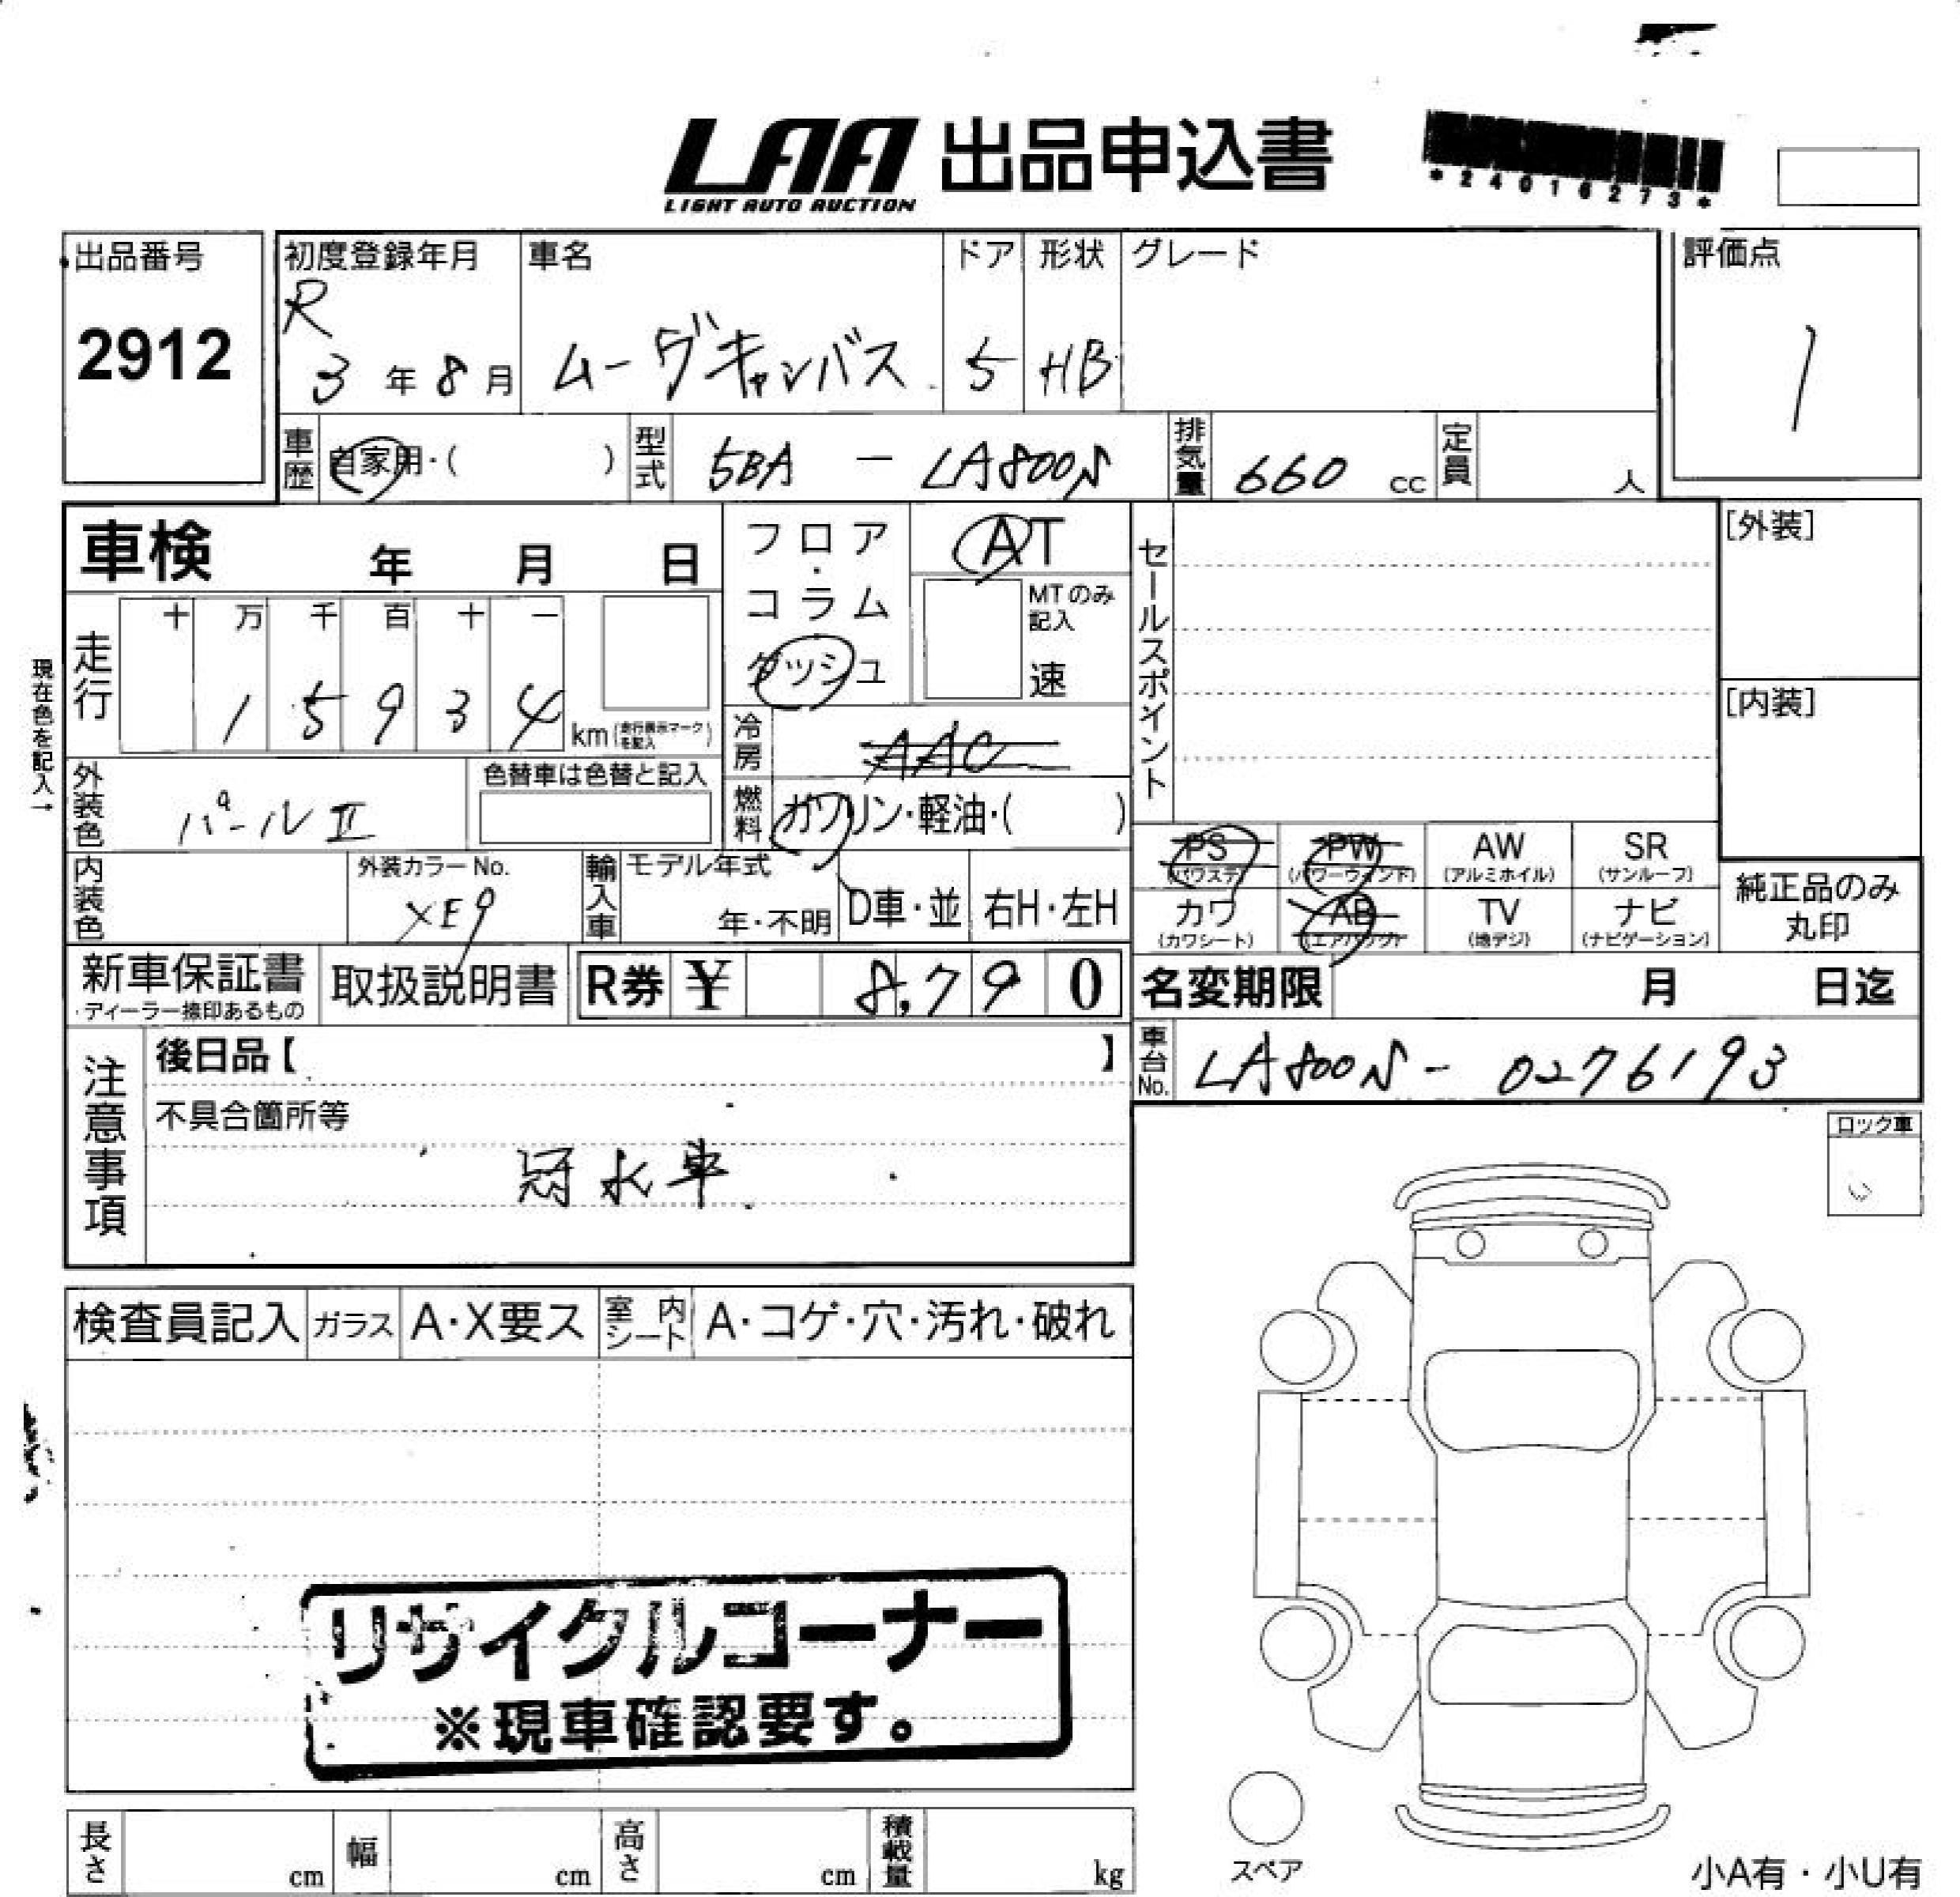 LAA 出品申込書
LIGHT AUTO AUCTION
*24016273*
出品番号
2912
初度登録年月
R
3年8月
車名
ムーヴキャンバス
ドア
5
形状
HB
グレード
評価点
1
車歴
自家用・( )
型式
5BA - LA800S
排気量
660 cc
定員
人
車検 年 月 日
フロア・コラム
ダッシュ
AT
MTのみ記入
速
セールスポイント
[外装]
[内装]
現在色を記入→
走行
十 万 千 百 十 一
1 5 9 3 4
km (走行表示マークを記入)
冷房
AAC
燃料
ガソリン・軽油・( )
外装色
パールII
色替車は色替と記入
内装色
外装カラーNo.
XE9
輸入車
モデル年式
年・不明
D車・並
右H・左H
PS
(パワステ)
PW
(パワーウィンド)
AW
(アルミホイル)
SR
(サンルーフ)
カワ
(カワシート)
AB
(エアバッグ)
TV
(地デジ)
ナビ
(ナビゲーション)
純正品のみ
丸印
新車保証書
・ディーラー捺印あるもの
取扱説明書
R券 ¥ 8,790
名変期限 月 日迄
車台No.
LA800S - 0276193
注意事項
後日品【 】
不具合箇所等
冠水車
ロック車
検査員記入
ガラス
A・X要ス
室内シート
A・コゲ・穴・汚れ・破れ
リサイクルコーナー
※現車確認要す。
長さ cm
幅 cm
高さ cm
積載量 kg
スペア
小A有・小U有